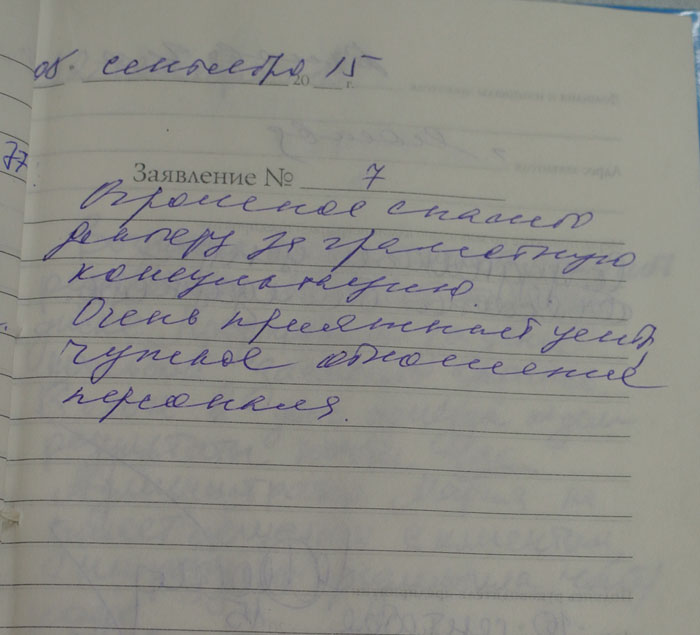 08. сентября 2015 г.
77
Заявление № 7
Огромное спасибо
доктору за грамотную
консультацию.
Очень приятный центр,
чуткое отношение
персонала.